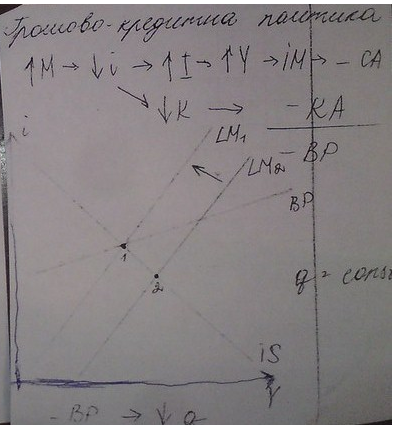 Грошово-кредитна політика
↑M → ↓i → ↑I → ↑Y → iM → - CA
↓K → - KA
- BP
i
LM1
LM2
BP
1
2
q = const
iS
Y
- BP → ↓